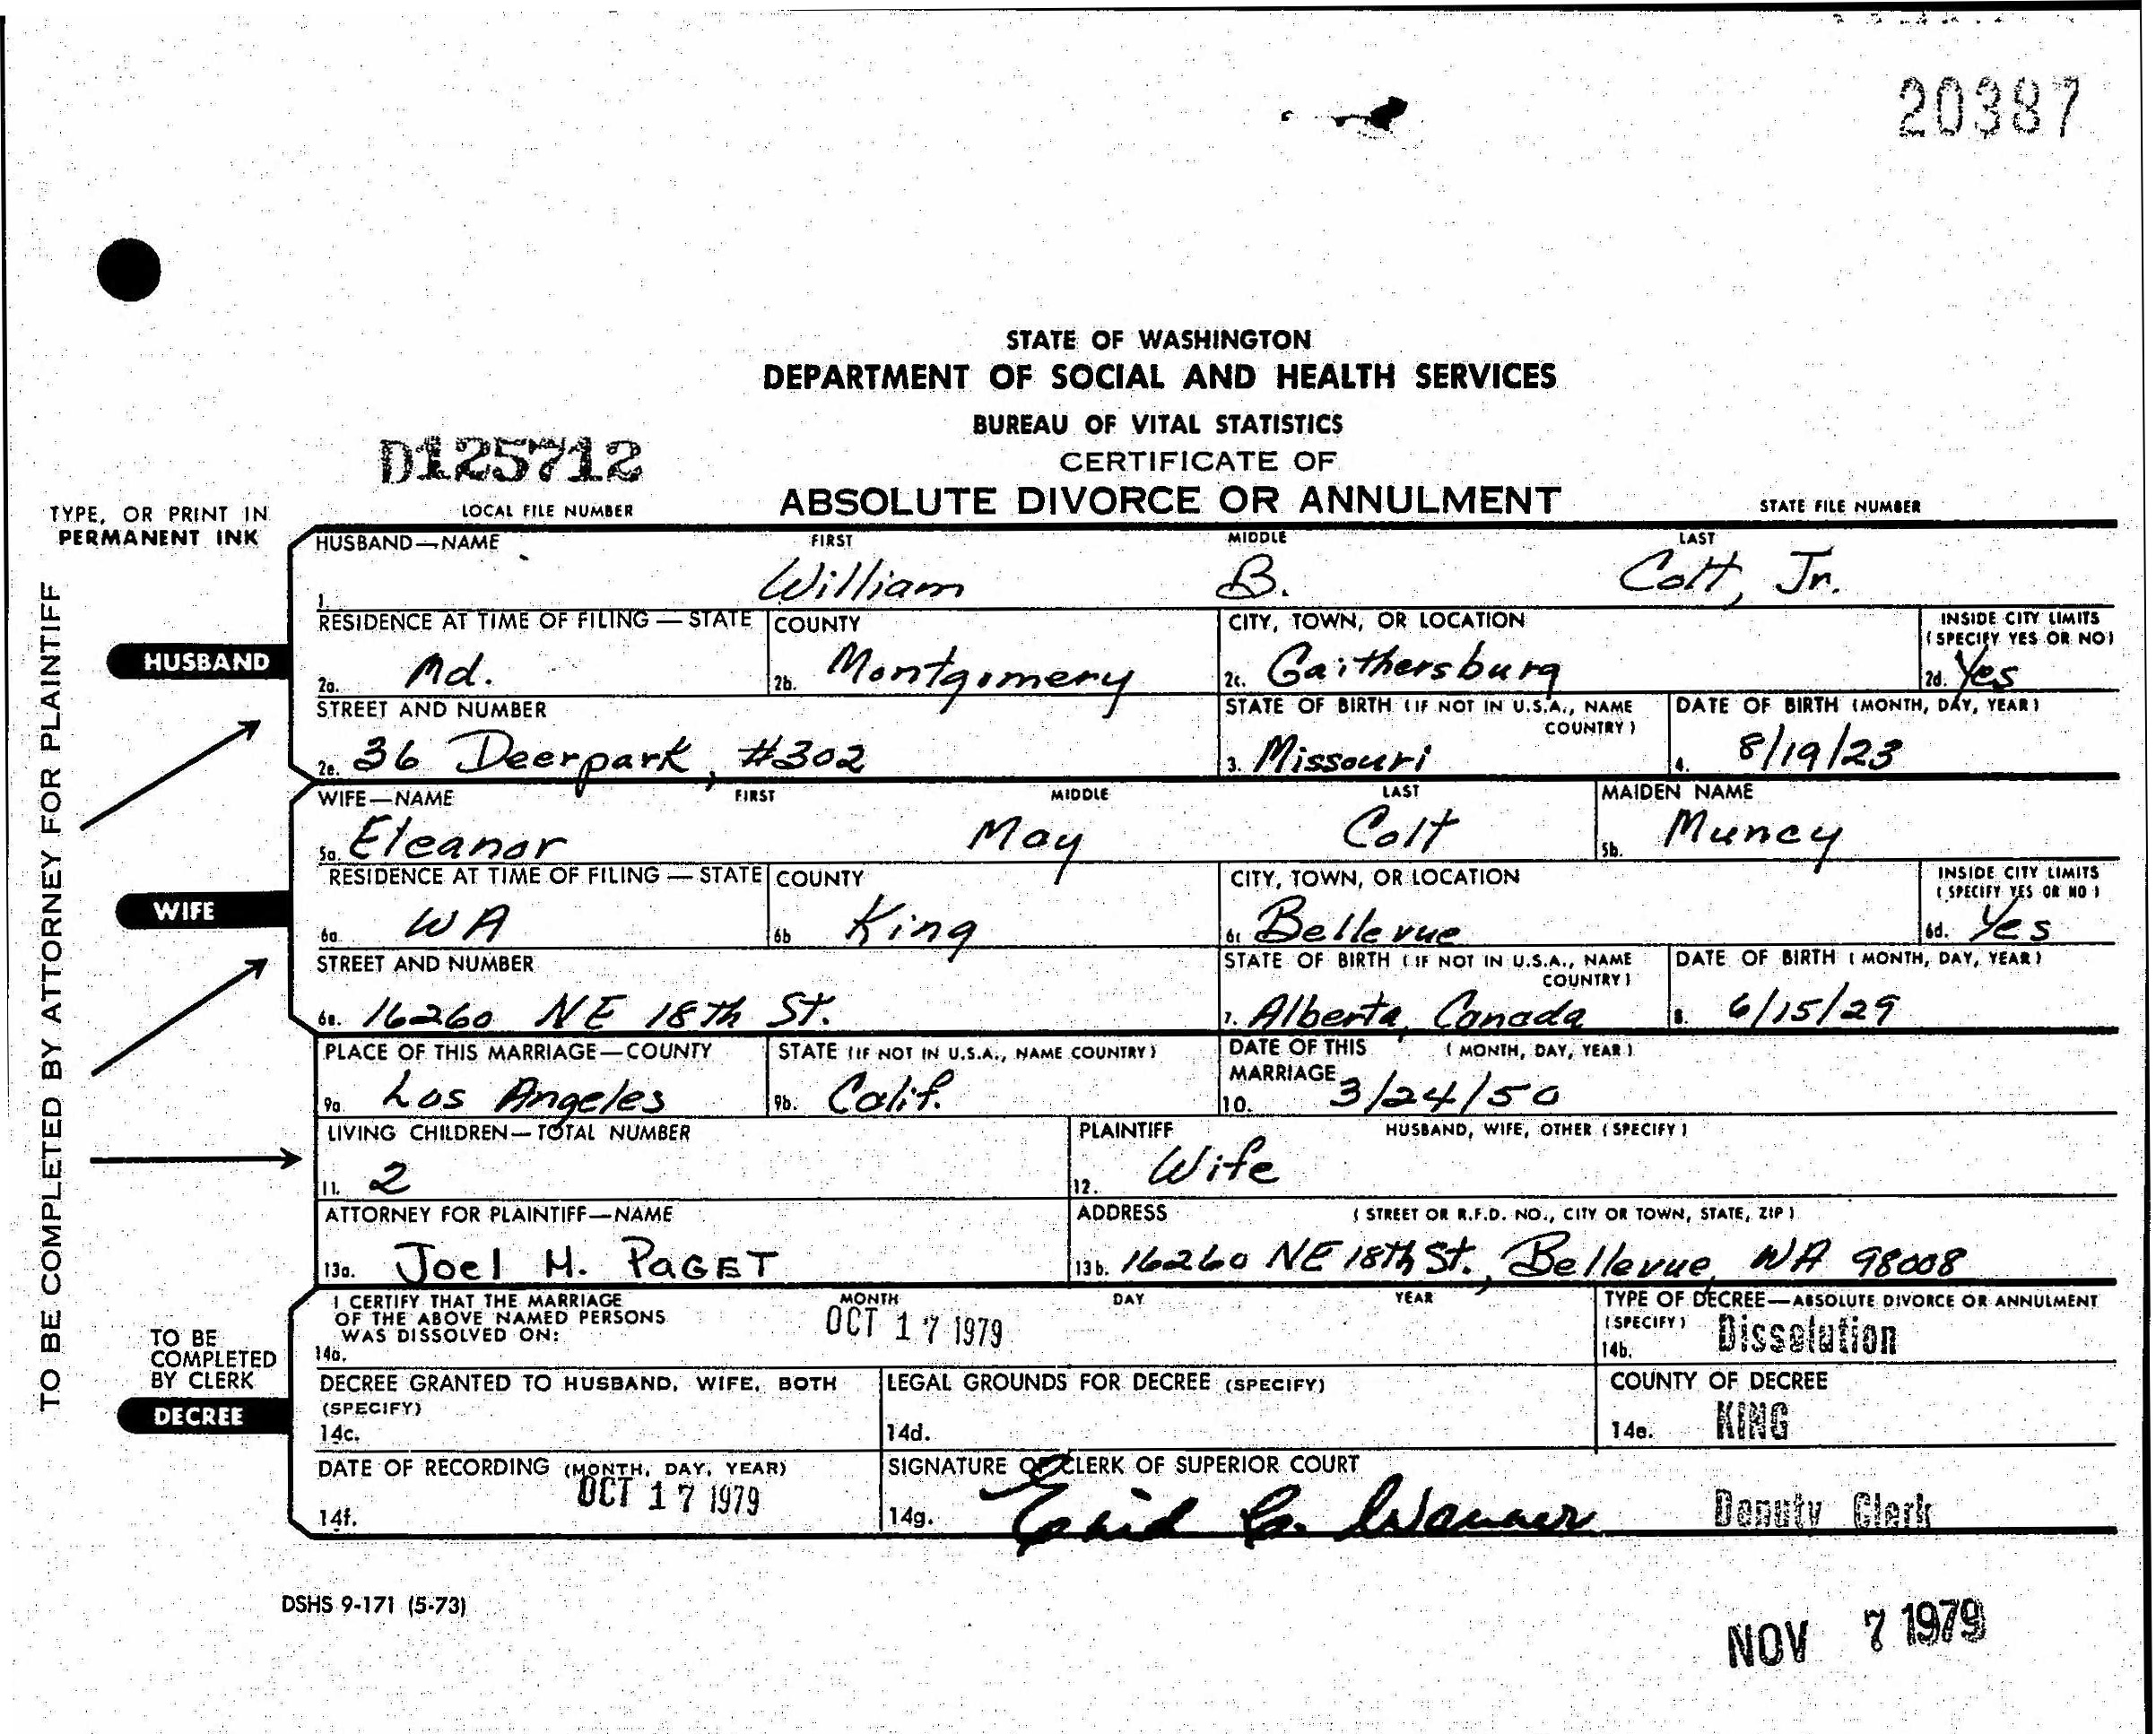 20387
STATE OF WASHINGTON
DEPARTMENT OF SOCIAL AND HEALTH SERVICES
BUREAU OF VITAL STATISTICS
D125712
CERTIFICATE OF
LOCAL FILE NUMBER
ABSOLUTE DIVORCE OR ANNULMENT
STATE FILE NUMBER
TYPE, OR PRINT IN
PERMANENT INK
TO BE COMPLETED BY ATTORNEY FOR PLAINTIFF
HUSBAND—NAME FIRST MIDDLE LAST
1. William B. Colt, Jr.
HUSBAND
RESIDENCE AT TIME OF FILING — STATE COUNTY CITY, TOWN, OR LOCATION INSIDE CITY LIMITS
(SPECIFY YES OR NO)
2a. Md. 2b. Montgomery 2c. Gaithersburg 2d. Yes
STREET AND NUMBER STATE OF BIRTH (IF NOT IN U.S.A., NAME COUNTRY) DATE OF BIRTH (MONTH, DAY, YEAR)
2e. 36 Deerpark, #302 3. Missouri 4. 8/19/23
WIFE—NAME FIRST MIDDLE LAST MAIDEN NAME
5a. Eleanor May Colt 5b. Muncy
WIFE
RESIDENCE AT TIME OF FILING — STATE COUNTY CITY, TOWN, OR LOCATION INSIDE CITY LIMITS
(SPECIFY YES OR NO)
6a WA 6b King 6c Bellevue 6d. Yes
STREET AND NUMBER STATE OF BIRTH (IF NOT IN U.S.A., NAME COUNTRY) DATE OF BIRTH (MONTH, DAY, YEAR)
6e. 16260 NE 18th St. 7. Alberta, Canada 8. 6/15/29
PLACE OF THIS MARRIAGE—COUNTY STATE (IF NOT IN U.S.A., NAME COUNTRY) DATE OF THIS MARRIAGE (MONTH, DAY, YEAR)
9a Los Angeles 9b. Calif. 10. 3/24/50
LIVING CHILDREN—TOTAL NUMBER PLAINTIFF HUSBAND, WIFE, OTHER (SPECIFY)
11. 2 12. Wife
ATTORNEY FOR PLAINTIFF—NAME ADDRESS (STREET OR R.F.D. NO., CITY OR TOWN, STATE, ZIP)
13a. Joel H. PAGET 13b. 16260 NE 18th St., Bellevue, WA 98008
TO BE
COMPLETED
BY CLERK
DECREE
I CERTIFY THAT THE MARRIAGE
OF THE ABOVE NAMED PERSONS
WAS DISSOLVED ON:
MONTH DAY YEAR
14a. OCT 17 1979
TYPE OF DECREE—ABSOLUTE DIVORCE OR ANNULMENT
(SPECIFY)
14b. Dissolution
DECREE GRANTED TO HUSBAND, WIFE, BOTH LEGAL GROUNDS FOR DECREE (SPECIFY) COUNTY OF DECREE
(SPECIFY)
14c. 14d. 14e. KING
DATE OF RECORDING (MONTH, DAY, YEAR) SIGNATURE OF CLERK OF SUPERIOR COURT
14f. OCT 17 1979 14g. Enid Deputy Clerk
DSHS 9-171 (5-73)
NOV 7 1979